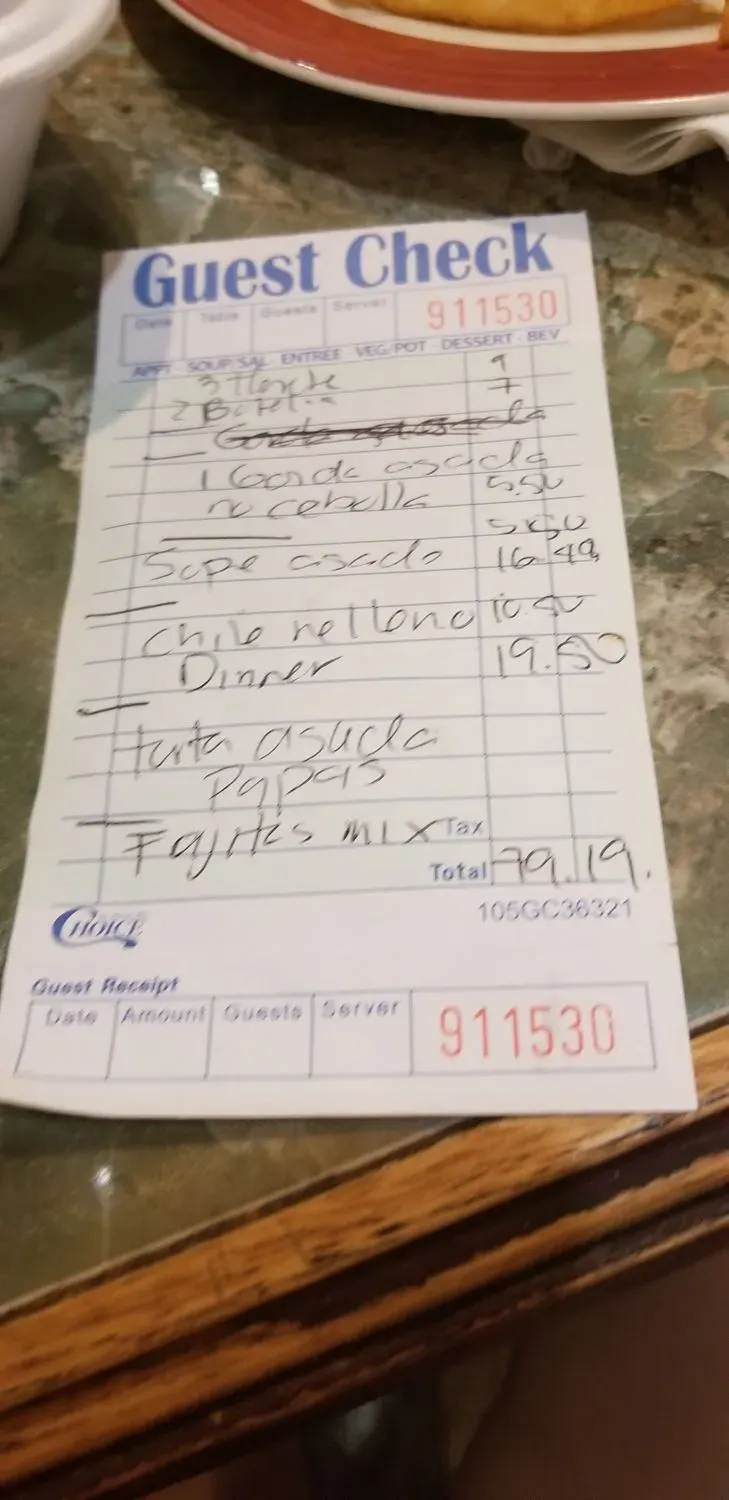 Guest Check
Date Table Guests Server 911530
APPT SOUP/SAL ENTREE VEG/POT DESSERT BEV
3 9
2 7
Gorda asada
1 Gorda asada
no cebolla 5.50
5.50
Sope asado 16 49
Chile relleno 10.50
Dinner 19.50
torta asada
Papas
Fajitas mix Tax
Total 79.19.
CHOICE
105GC36321
Guest Receipt
Date Amount Guests Server 911530